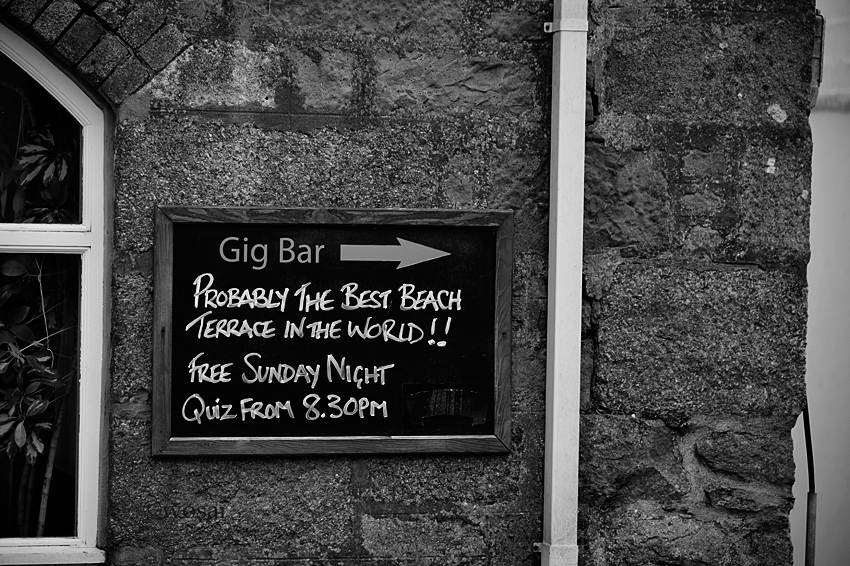 Gig Bar
PROBABLY THE BEST BEACH
TERRACE IN THE WORLD!!
FREE SUNDAY NIGHT
QUIZ FROM 8.30PM